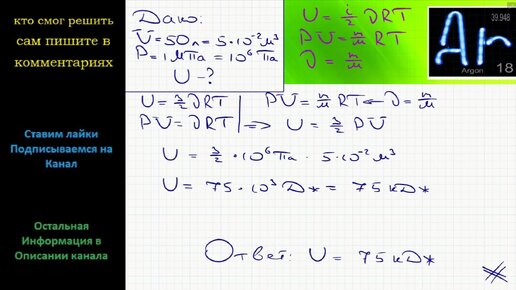 кто смог решить
сам пишите в
комментариях
Ставим лайки
Подписываемся на
Канал
Остальная
Информация в
Описании канала
Дано:
V = 50 л = 5·10⁻² м³
P = 1 МПа = 10⁶ Па
U - ?
U = i/2 νRT
PV = m/M RT
ν = m/M
39.948
Ar
Argon
18
U = 3/2 νRT | PV = m/M RT ← ν = m/M
PV = νRT | ⇒ U = 3/2 PV
U = 3/2 · 10⁶ Па · 5·10⁻² м³
U = 75 · 10³ Дж = 75 кДж
Ответ: U = 75 кДж